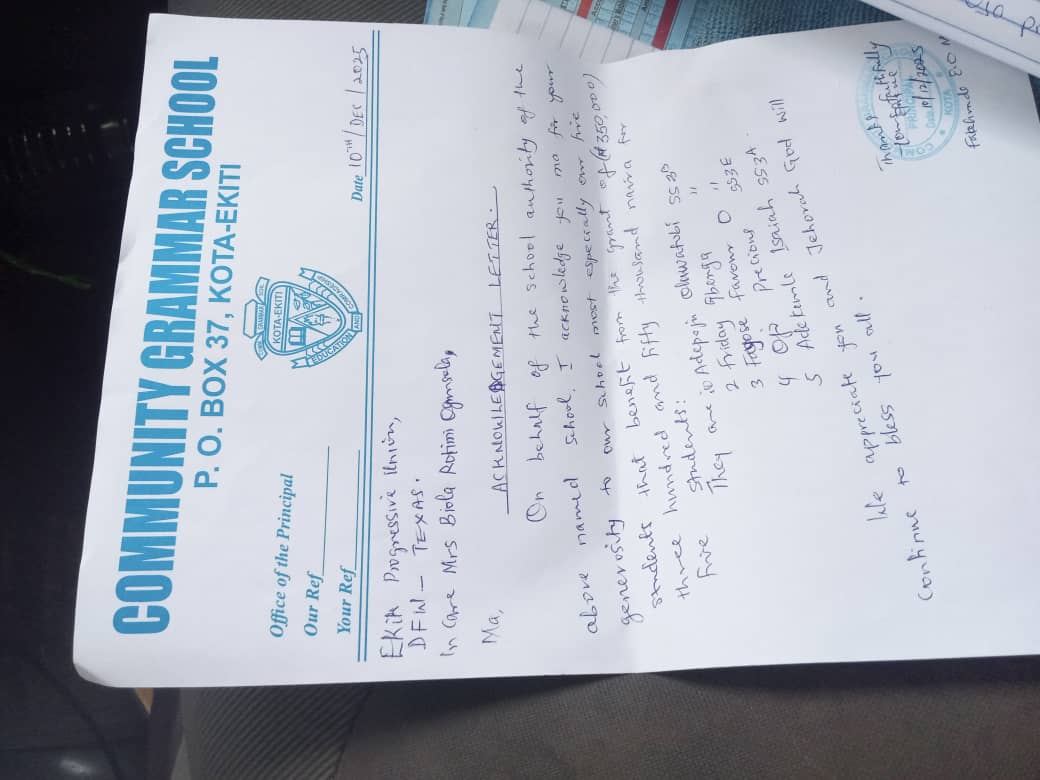 COMMUNITY GRAMMAR SCHOOL
P. O. BOX 37, KOTA-EKITI
COMM. GRAMMAR SCH.
KOTA-EKITI
EDUCATION AND
Office of the Principal
Our Ref
Your Ref
Date 10TH/DEC/2025
EKITI Progressive Union,
DFW - TEXAS.
In Care Mrs Biola Rotimi
Ma,
ACKNOWLEDGEMENT LETTER.
On behalf of the school authority of the
above named school. I acknowledge you ma for your
generosity to our school most especially our five
students that benefit from the grant of (₦350,000)
three hundred and fifty thousand naira for
five students:
They are 1. Adepoju Oluwatobi SS3D
2 Friday Gbenga "
3 Fagose Favour O "
4 Ojo Precious SS3E
5 Adekunle Isaiah SS3A.
We appreciate you and Jehovah God will
continue to bless you all.
Thanks
Yours faithfully
PRINCIPAL
Date 10/12/2025
KOTA
E.O M